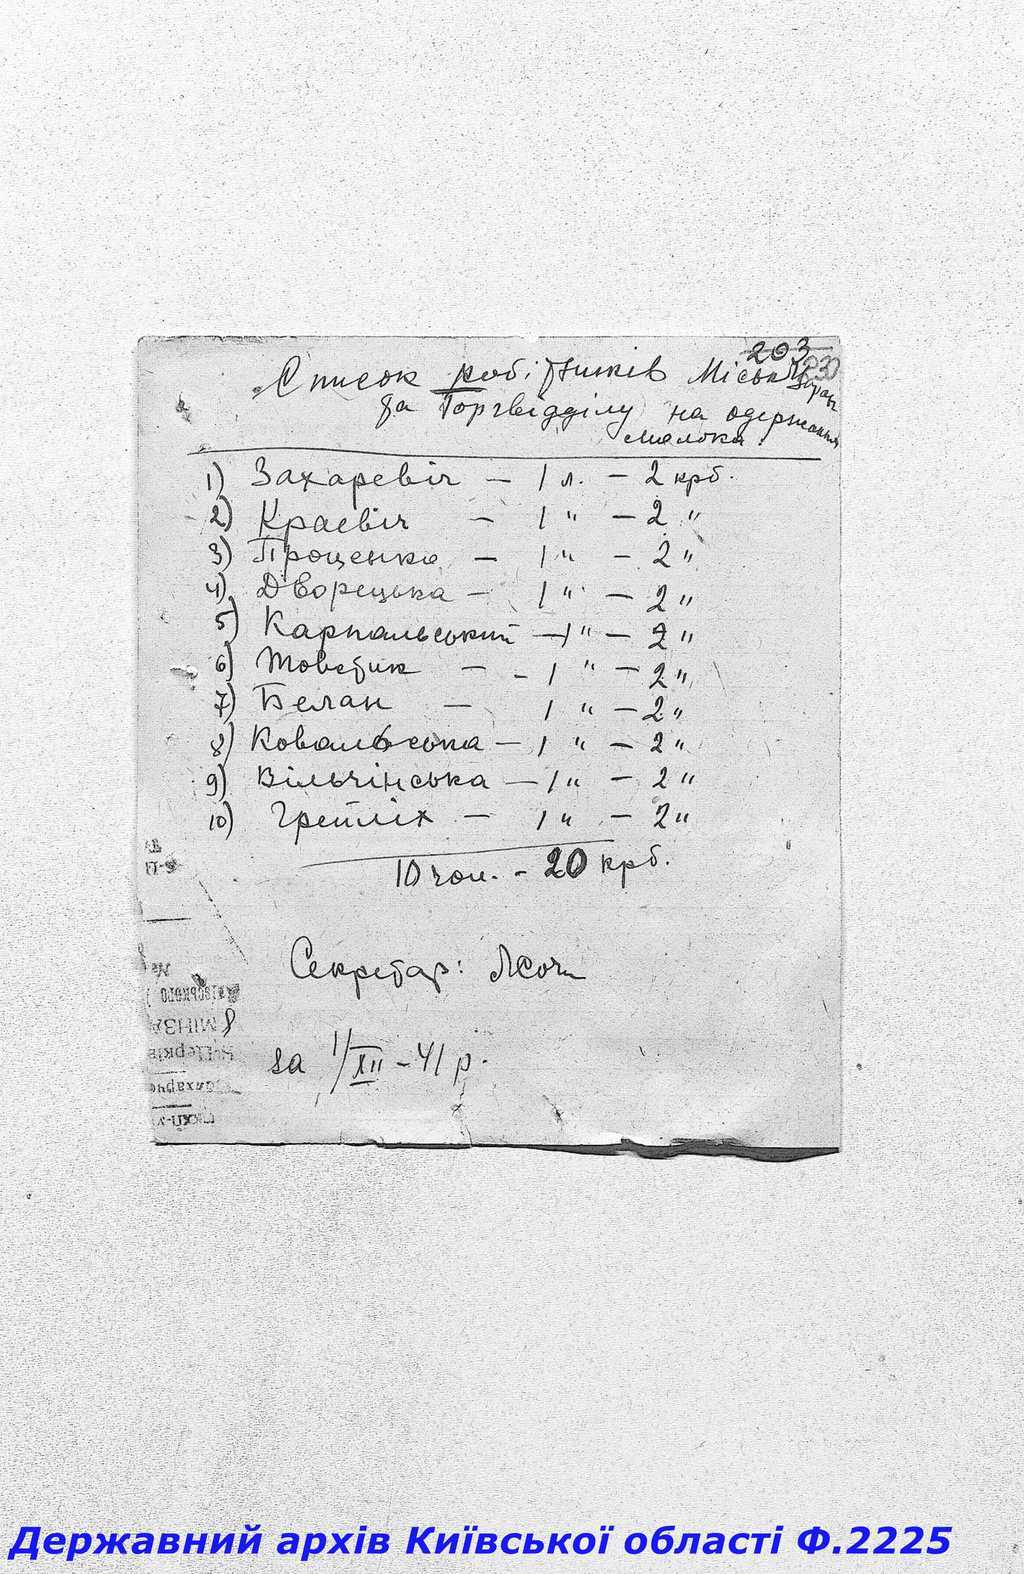 203
230
Список робітників Міськ
та Торгвідділу на одержання
молока.
1) Захаревіч — 1 л. — 2 крб.
2) Краєвіч — 1 " — 2 "
3) Проценко — 1 " — 2 "
4) Дворецька — 1 " — 2 "
5) Карпальський — 1 " — 2 "
6) Товстик — - 1 " — 2 "
7) Белан — 1 " — 2 "
8) Ковальська — 1 " — 2 "
9) Вільчінська — 1 " — 2 "
10) — 1 " — 2 "
10 чол. - 20 крб.
Секретар:
за 1/XII - 41 р.
Державний архів Київської області Ф.2225